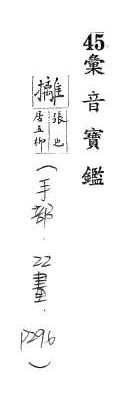 45彙音寶鑑
攡
張也
居五柳
(手部.22畫.P296)